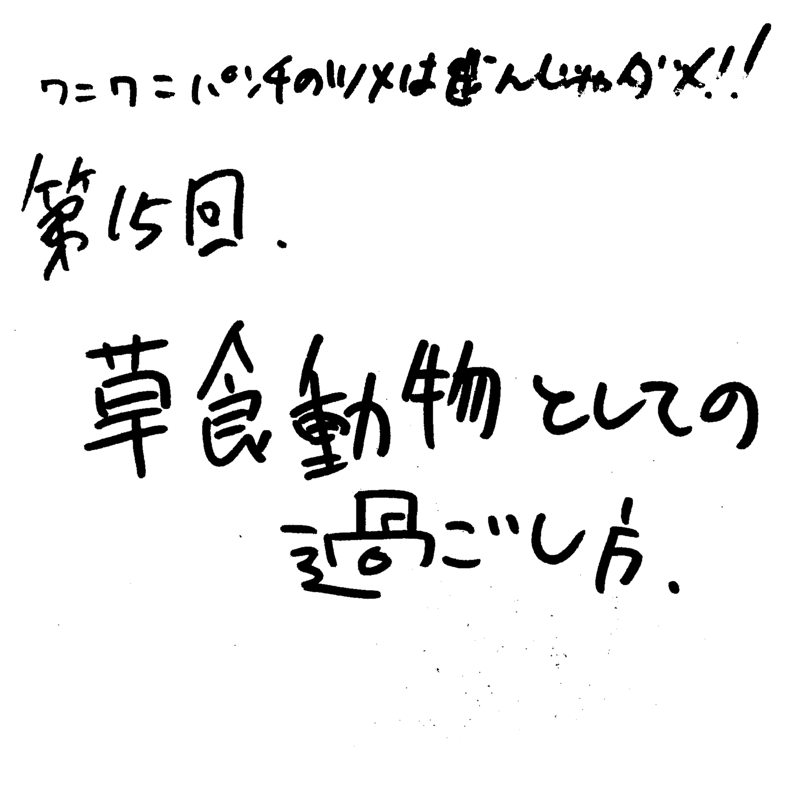 ワニワニパンチのツメは甘んじゃダメ!!
第15回.
草食動物としての
過ごし方.